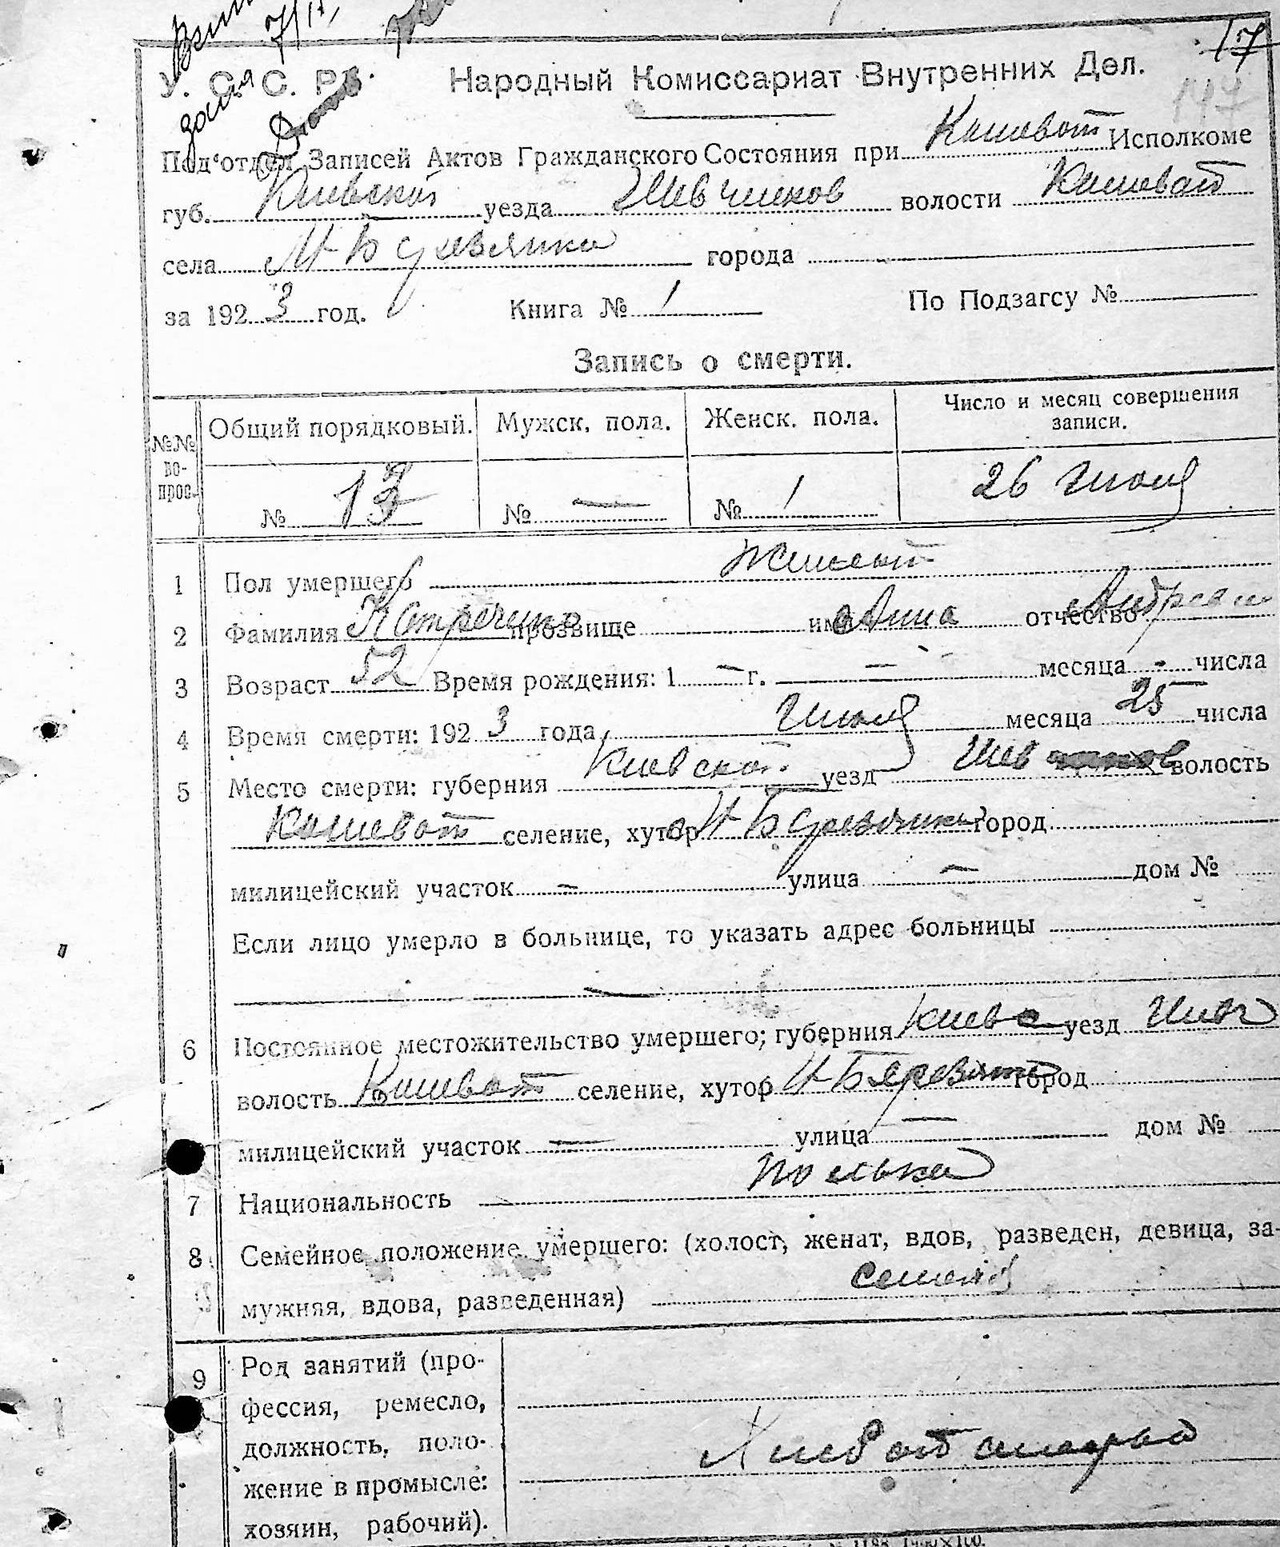 17
147
У. С. С. Р. Народный Комиссариат Внутренних Дел.
Под'отдел Записей Актов Гражданского Состояния при Кошеват Исполкоме
губ. Киевской уезда Шевченков волости Кошеват
села города
за 1923 год. Книга № 1 По Подзагсу №
Запись о смерти.
№№ вопрос. Общий порядковый. Мужск. пола. Женск. пола. Число и месяц совершения записи.
№ 13 № — № 1 26 Июля
1 Пол умершего Женский
2 Фамилия прозвище имя Анна отчество
3 Возраст 52 Время рождения: 1 — г. — месяца - числа
4 Время смерти: 1923 года Июля месяца 25 числа
5 Место смерти: губерния Киевской уезд Шевченков волость
Кошеват селение, хутор город
милицейский участок — улица — дом №
Если лицо умерло в больнице, то указать адрес больницы
—
6 Постоянное местожительство умершего; губерния Киевс уезд Шевч
волость Кошеват селение, хутор город
милицейский участок — улица — дом №
7 Национальность полька
8 Семейное положение умершего: (холост, женат, вдов, разведен, девица, за-
мужняя, вдова, разведенная)
9 Род занятий (про-
фессия, ремесло,
должность, поло-
жение в промысле:
хозяин, рабочий).